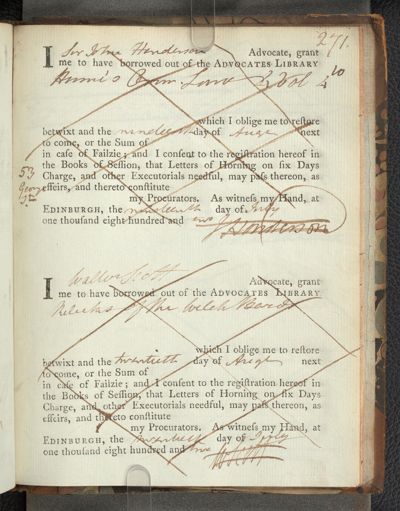 271.
I Sir John Henderson Advocate, grant
me to have borrowed out of the ADVOCATES LIBRARY
Hume's Crim. Law 2 Vol 4to
which I oblige me to reſtore
betwixt and the nineteenth day of Augt next
to come, or the Sum of
in caſe of Failzie; and I conſent to the regiſtration hereof in
the Books of Seſſion, that Letters of Horning on ſix Days
Charge, and other Executorials needful, may paſs thereon, as
effeirs, and thereto conſtitute
53
George
my Procurators. As witneſs my Hand, at
EDINBURGH, the nineteenth day of July
one thousand eight hundred and one
J Henderson
I Walter Scott Advocate, grant
me to have borrowed out of the ADVOCATES LIBRARY
Relicks of the Welch Bards
which I oblige me to reſtore
betwixt and the twentieth day of Augt next
to come, or the Sum of
in caſe of Failzie; and I conſent to the regiſtration hereof in
the Books of Seſſion, that Letters of Horning on ſix Days
Charge, and other Executorials needful, may paſs thereon, as
effeirs, and thereto conſtitute
my Procurators. As witneſs my Hand, at
EDINBURGH, the twentieth day of July
one thouſand eight hundred and one
W Scott